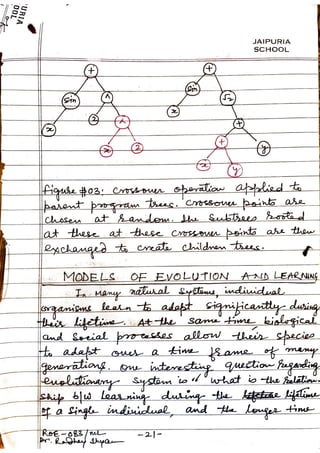 URIA
OOL
JAIPURIA
SCHOOL
+
+
Sin
^
Sin
√2
x
2
^
x
+
x
2
+
y
x
y
figure #03: Crossover operation applied to
parent program trees. Crossover points are
chosen at random. The Subtrees rooted
at these at these crossover points are then
exchanged to create children trees.
MODELS OF EVOLUTION AND LEARNING
In Many natural Systems, individual
organisms learn to adapt significantly during
their lifetime. At the same time biological
and Social processes allow their species
to adapt over a time frame of many
generations. One interesting question Regarding
evolutionary System is " what is the Relation-
Ship b/w learning during the lifetime
of a Single individual, and the longer time
ROE-083/
-21-
Dr.